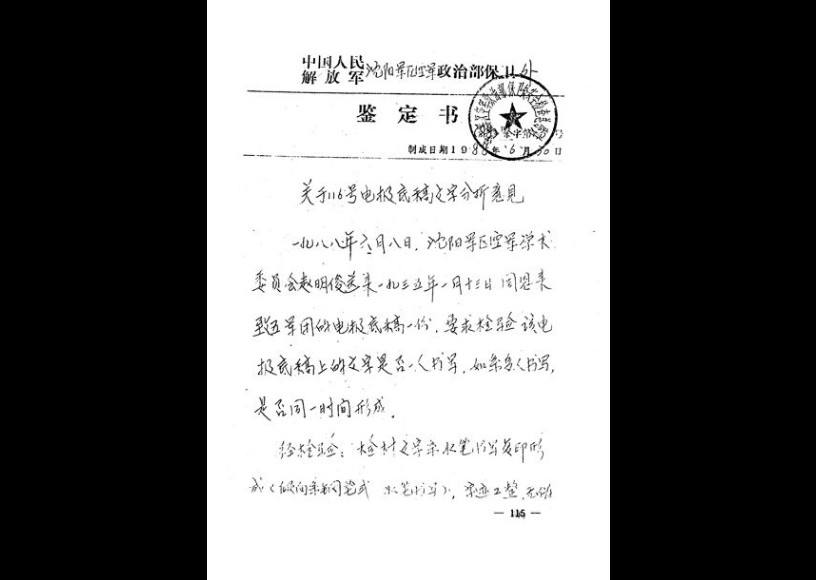 中国人民
解放军 沈阳军区空军政治部保卫处
鉴定书
鉴字第 号
制成日期1988年6月30日
关于116号电报底稿文字分析意见
一九八八年六月八日，沈阳军区空军学术
委员会赵明俊送来一九三五年一月十三日周恩来
致五军团的电报底稿一份，要求检验该电
报底稿上的文字是否一人书写，如系多人书写，
是否同一时间形成。
经检验：检材文字系水笔书写复印形
成 水笔书写），字迹工整，
— 115 —